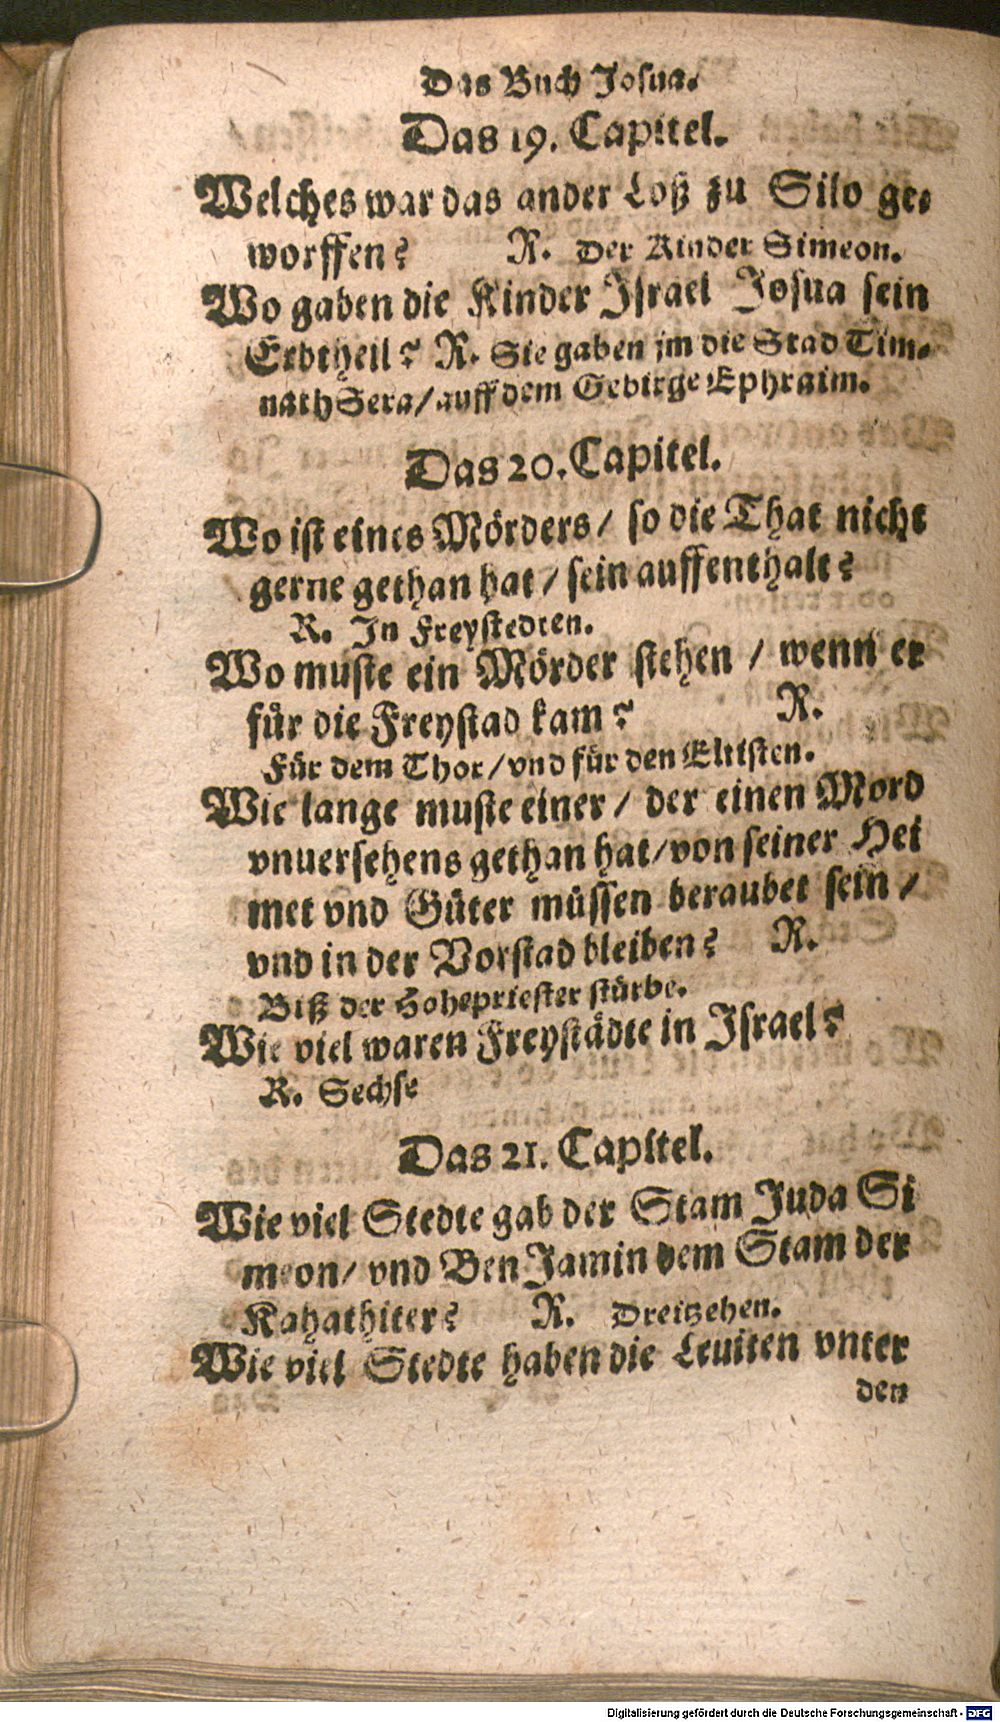 Das Buch Josua.
Das 19. Capitel.
Welches war das ander Loß zu Silo ge-
worffen? R. Der Kinder Simeon.
Wo gaben die Kinder Jsrael Josua sein
Erbtheil? R. Sie gaben jm die Stad Tim-
nath Sera/ auff dem Gebirge Ephraim.
Das 20. Capitel.
Wo ist eines Mörders/ so die That nicht
gerne gethan hat/ sein auffenthalt?
R. Jn Freystedten.
Wo muste ein Mörder stehen/ wenn er
für die Freystad kam? R.
Für dem Thor/ vnd für den Eltisten.
Wie lange muste einer/ der einen Mord
vnuersehens gethan hat/ von seiner Hei
met vnd Güter müssen beraubet sein/
vnd in der Vorstad bleiben? R.
Biß der Hohepriester stürbe.
Wie viel waren Freystädte in Jsrael?
R. Sechse
Das 21. Capitel.
Wie viel Stedte gab der Stam Juda Si
meon/ vnd Ben Jamin dem Stam der
Kahathiter? R. Dreitzehen.
Wie viel Stedte haben die Leuiten vnter
den
Digitalisierung gefördert durch die Deutsche Forschungsgemeinschaft - DFG